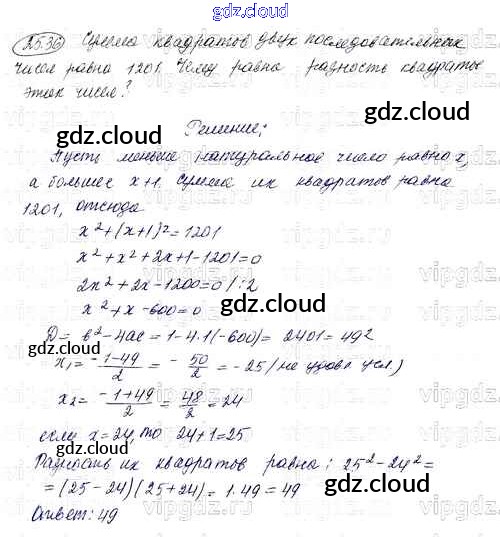 gdz.cloud
25.36 Сумма квадратов двух последовательных
чисел равна 1201. Чему равна разность квадратов
этих чисел?
gdz.cloud
gdz.cloud
Решение:
Пусть меньшее натуральное число равно x,
а большее x+1. Сумма их квадратов равна
1201, отсюда
gdz.cloud
x²+(x+1)²=1201
x²+x²+2x+1-1201=0
2x²+2x-1200=0/:2
x²+x-600=0
gdz.cloud
gdz.cloud
D= b²-4ac=1-4·1(-600)= 2401=49²
gdz.cloud
x₁= -1-49/2 = - 50/2 = -25 (не удовл усл.)
x₂= -1+49/2 = 48/2 =24
gdz.cloud
если x=24, то 24+1=25
Разность их квадратов равна: 25²-24²=
=(25-24)(25+24)=1·49=49
gdz.cloud
Ответ: 49
gdz.cloud